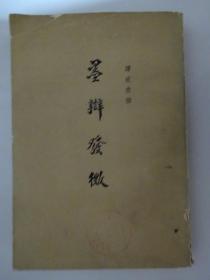 墨辯發微
譚戒甫撰